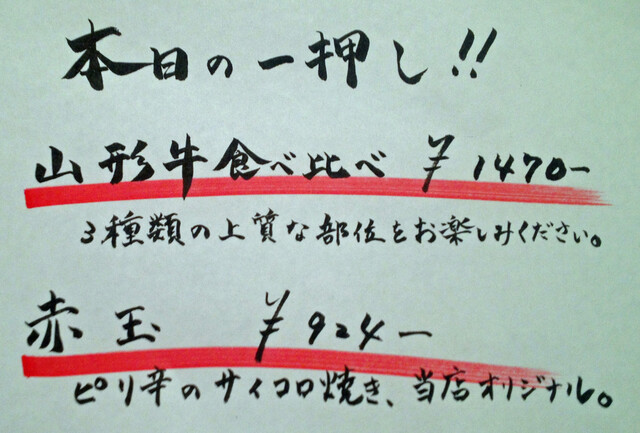 本日の一押し!!
山形牛食べ比べ ¥1470-
3種類の上質な部位をお楽しみください。
赤玉 ¥924-
ピリ辛のサイコロ焼き、当店オリジナル。